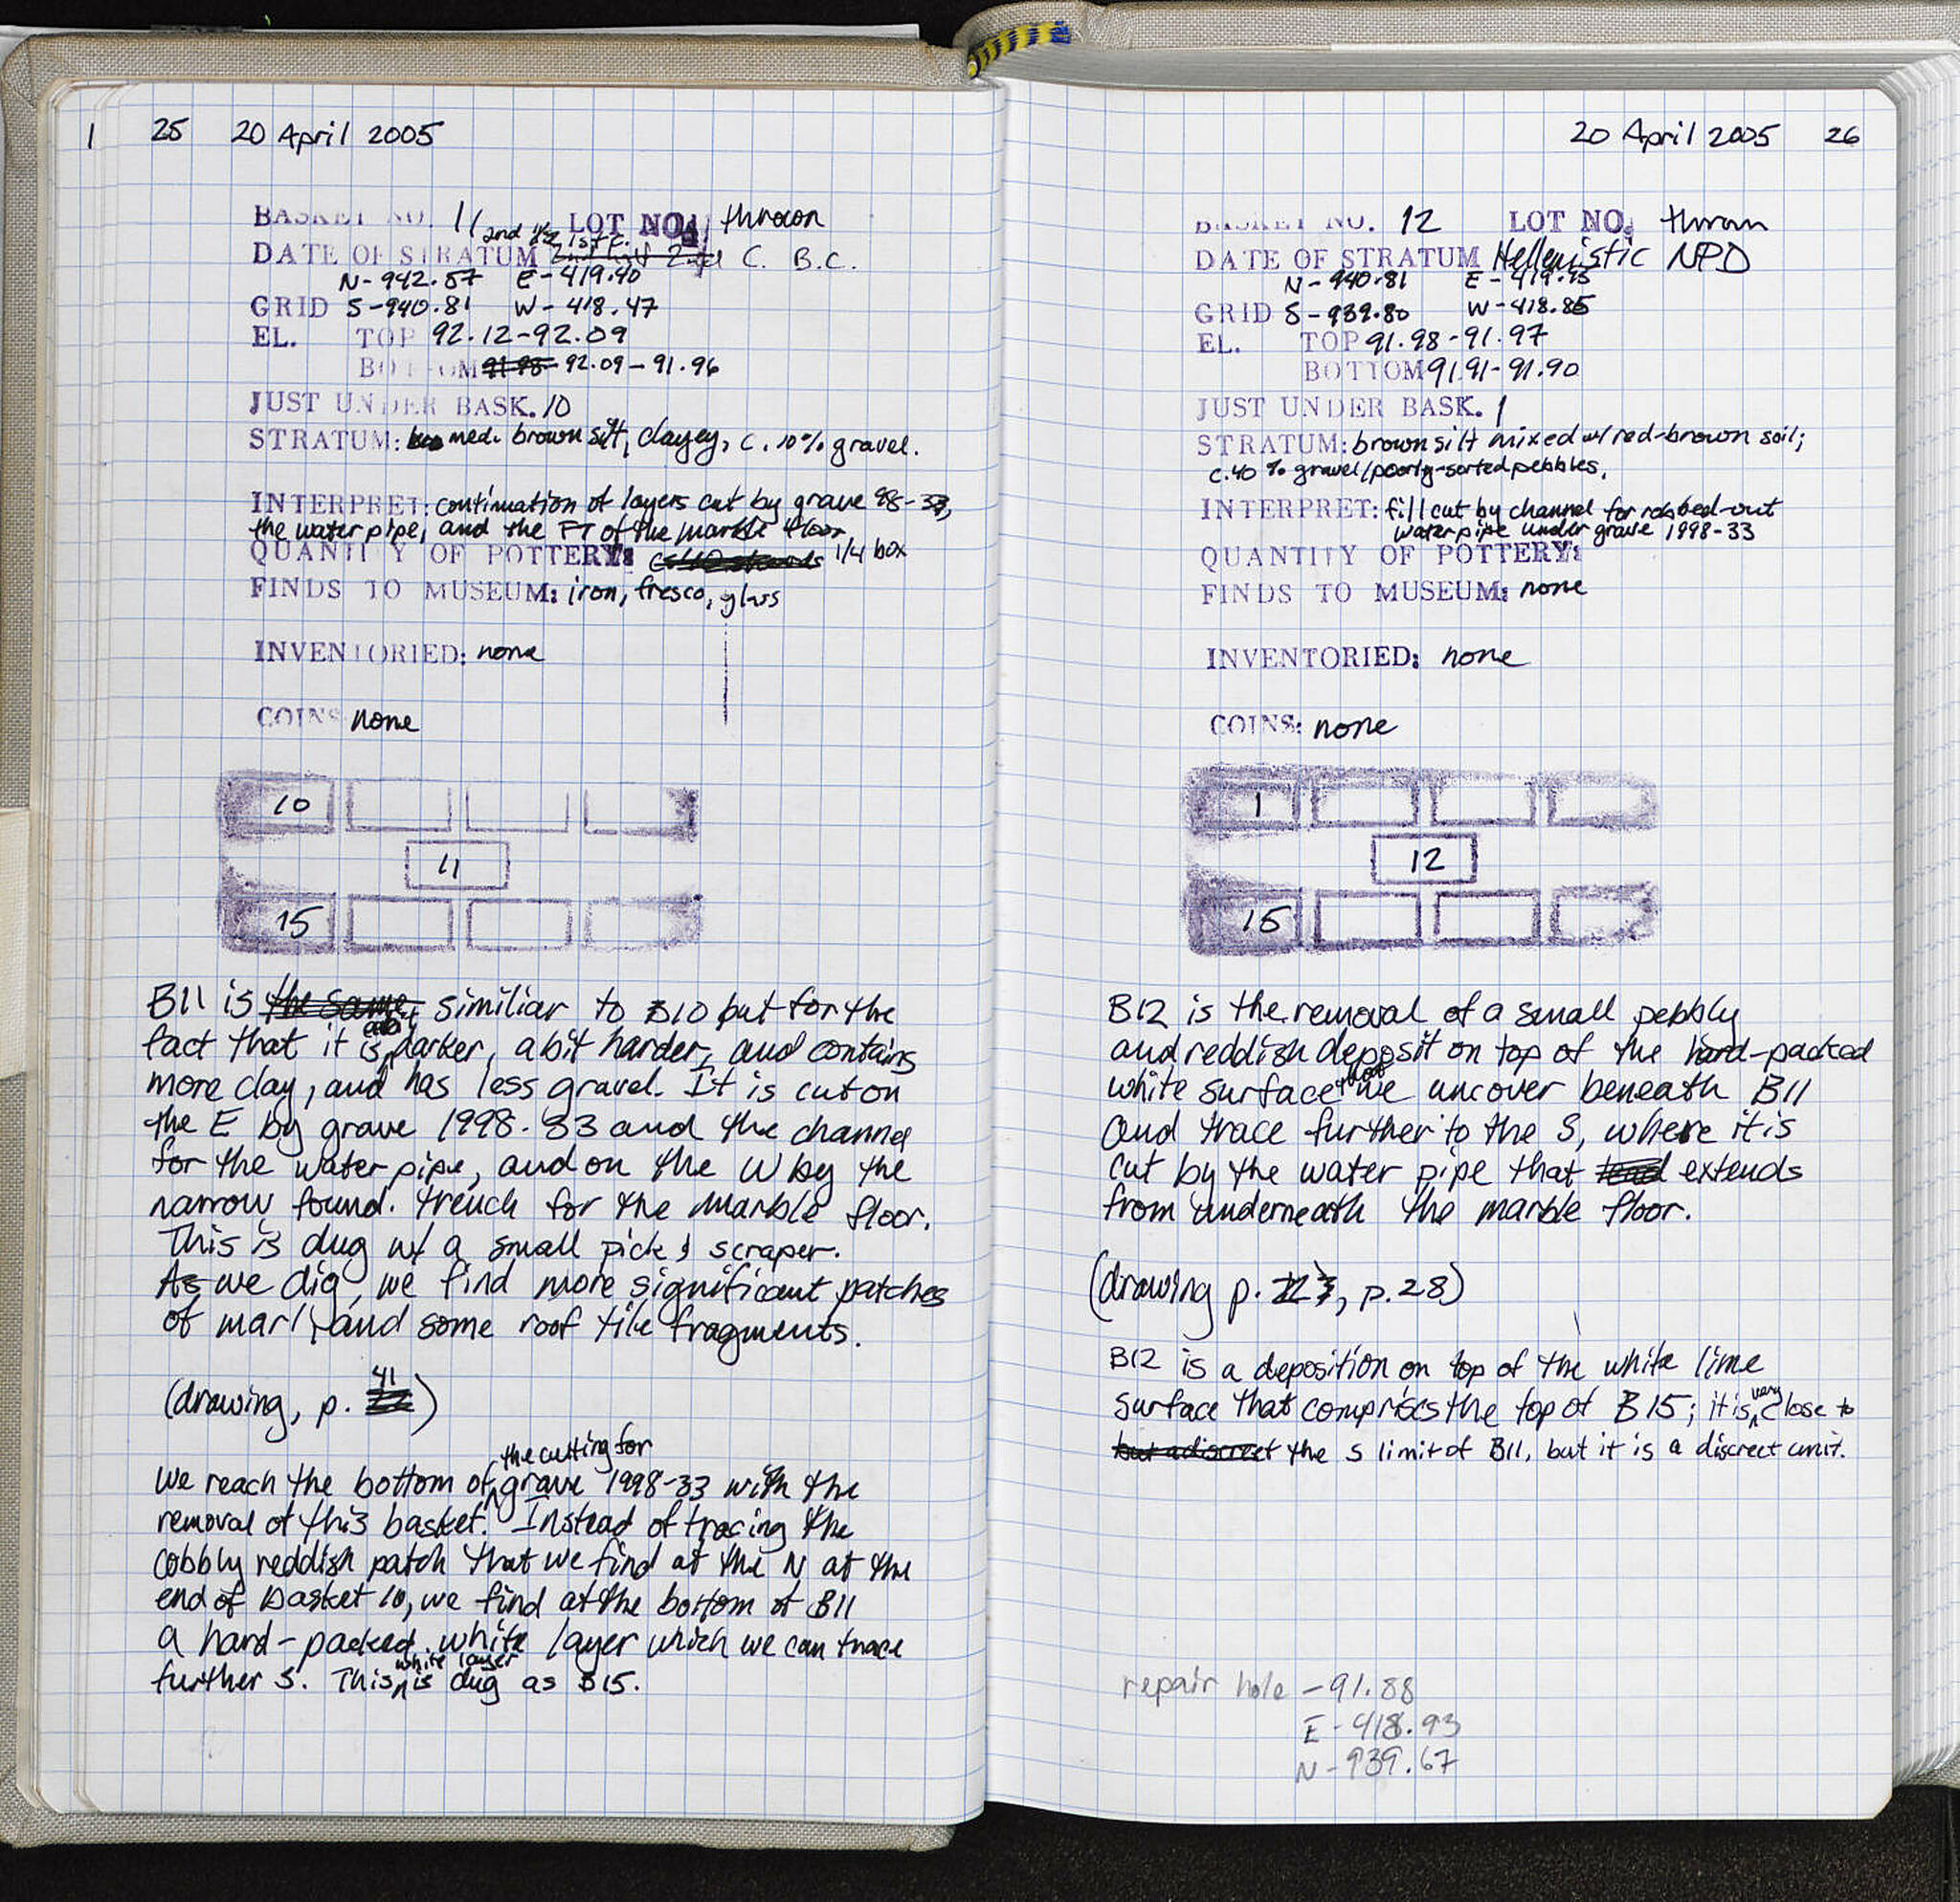 1 25 20 April 2005
BASKET NO. 11 LOT NO. thrown
2nd 1/2 1st c.
DATE OF STRATUM C. B.C.
N-942.57 E-419.40
GRID S-940.81 W-418.47
EL. TOP 92.12-92.09
BOTTOM 91.98 92.09-91.96
JUST UNDER BASK. 10
STRATUM: med. brown silt, clayey, c. 10% gravel.
INTERPRET: continuation of layers cut by grave 98-33,
the water pipe, and the FT of the marble floor
QUANTITY OF POTTERY: 1/4 box
FINDS TO MUSEUM: iron, fresco, glass
INVENTORIED: none
COINS none
10
11
15
B11 is the same similiar to B10 but for the
fact that it is darker, a bit harder, and contains
more clay, and has less gravel. It is cut on
the E by grave 1998-33 and the channel
for the water pipe, and on the W by the
narrow found. trench for the marble floor.
This is dug w/ a small pick & scraper.
As we dig, we find more significant patches
of marl, and some roof tile fragments.
(drawing, p. 41)
the cutting for
We reach the bottom of grave 1998-33 with the
removal of this basket. Instead of tracing the
cobbly reddish patch that we find at the N at the
end of Basket 10, we find at the bottom of B11
a hard-packed white layer which we can trace
white layer
further S. This is dug as B15.
20 April 2005 26
BASKET NO. 12 LOT NO. thrown
DATE OF STRATUM Hellenistic NPD
N-940.81 E-419.15
GRID S-939.80 W-418.85
EL. TOP 91.98-91.97
BOTTOM 91.91-91.90
JUST UNDER BASK. 1
STRATUM: brown silt mixed w/ red-brown soil;
c. 40% gravel/poorly-sorted pebbles.
INTERPRET: fill cut by channel for robbed-out
water pipe under grave 1998-33
QUANTITY OF POTTERY:
FINDS TO MUSEUM: none
INVENTORIED: none
COINS: none
1
12
15
B12 is the removal of a small pebbly
and reddish deposit on top of the hard-packed
white surface that we uncover beneath B11
and trace further to the S, where it is
cut by the water pipe that extends
from underneath the marble floor.
(drawing p. , p.28)
B12 is a deposition on top of the white lime
surface that comprises the top of B15; it is very close to
but a discreet the S limit of B11, but it is a discreet unit.
repair hole -91.88
E-418.93
N-939.67